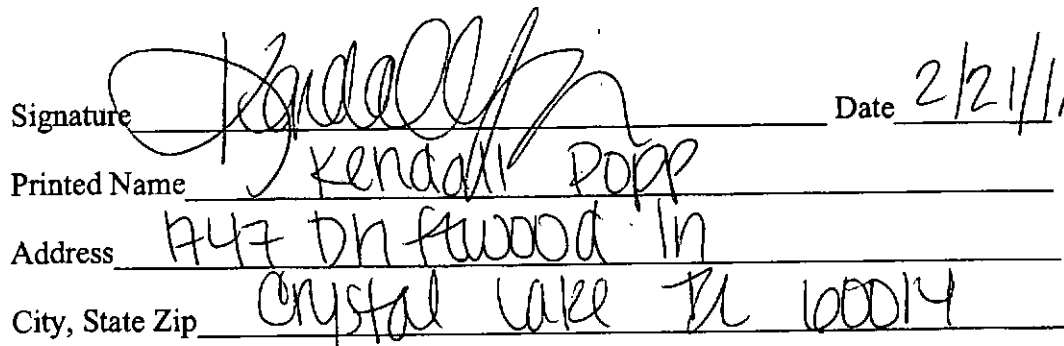 Signature Kendall Popp Date 2/21/1
Printed Name Kendall Popp
Address 1747 Driftwood ln
City, State Zip Crystal Lake IL 60014